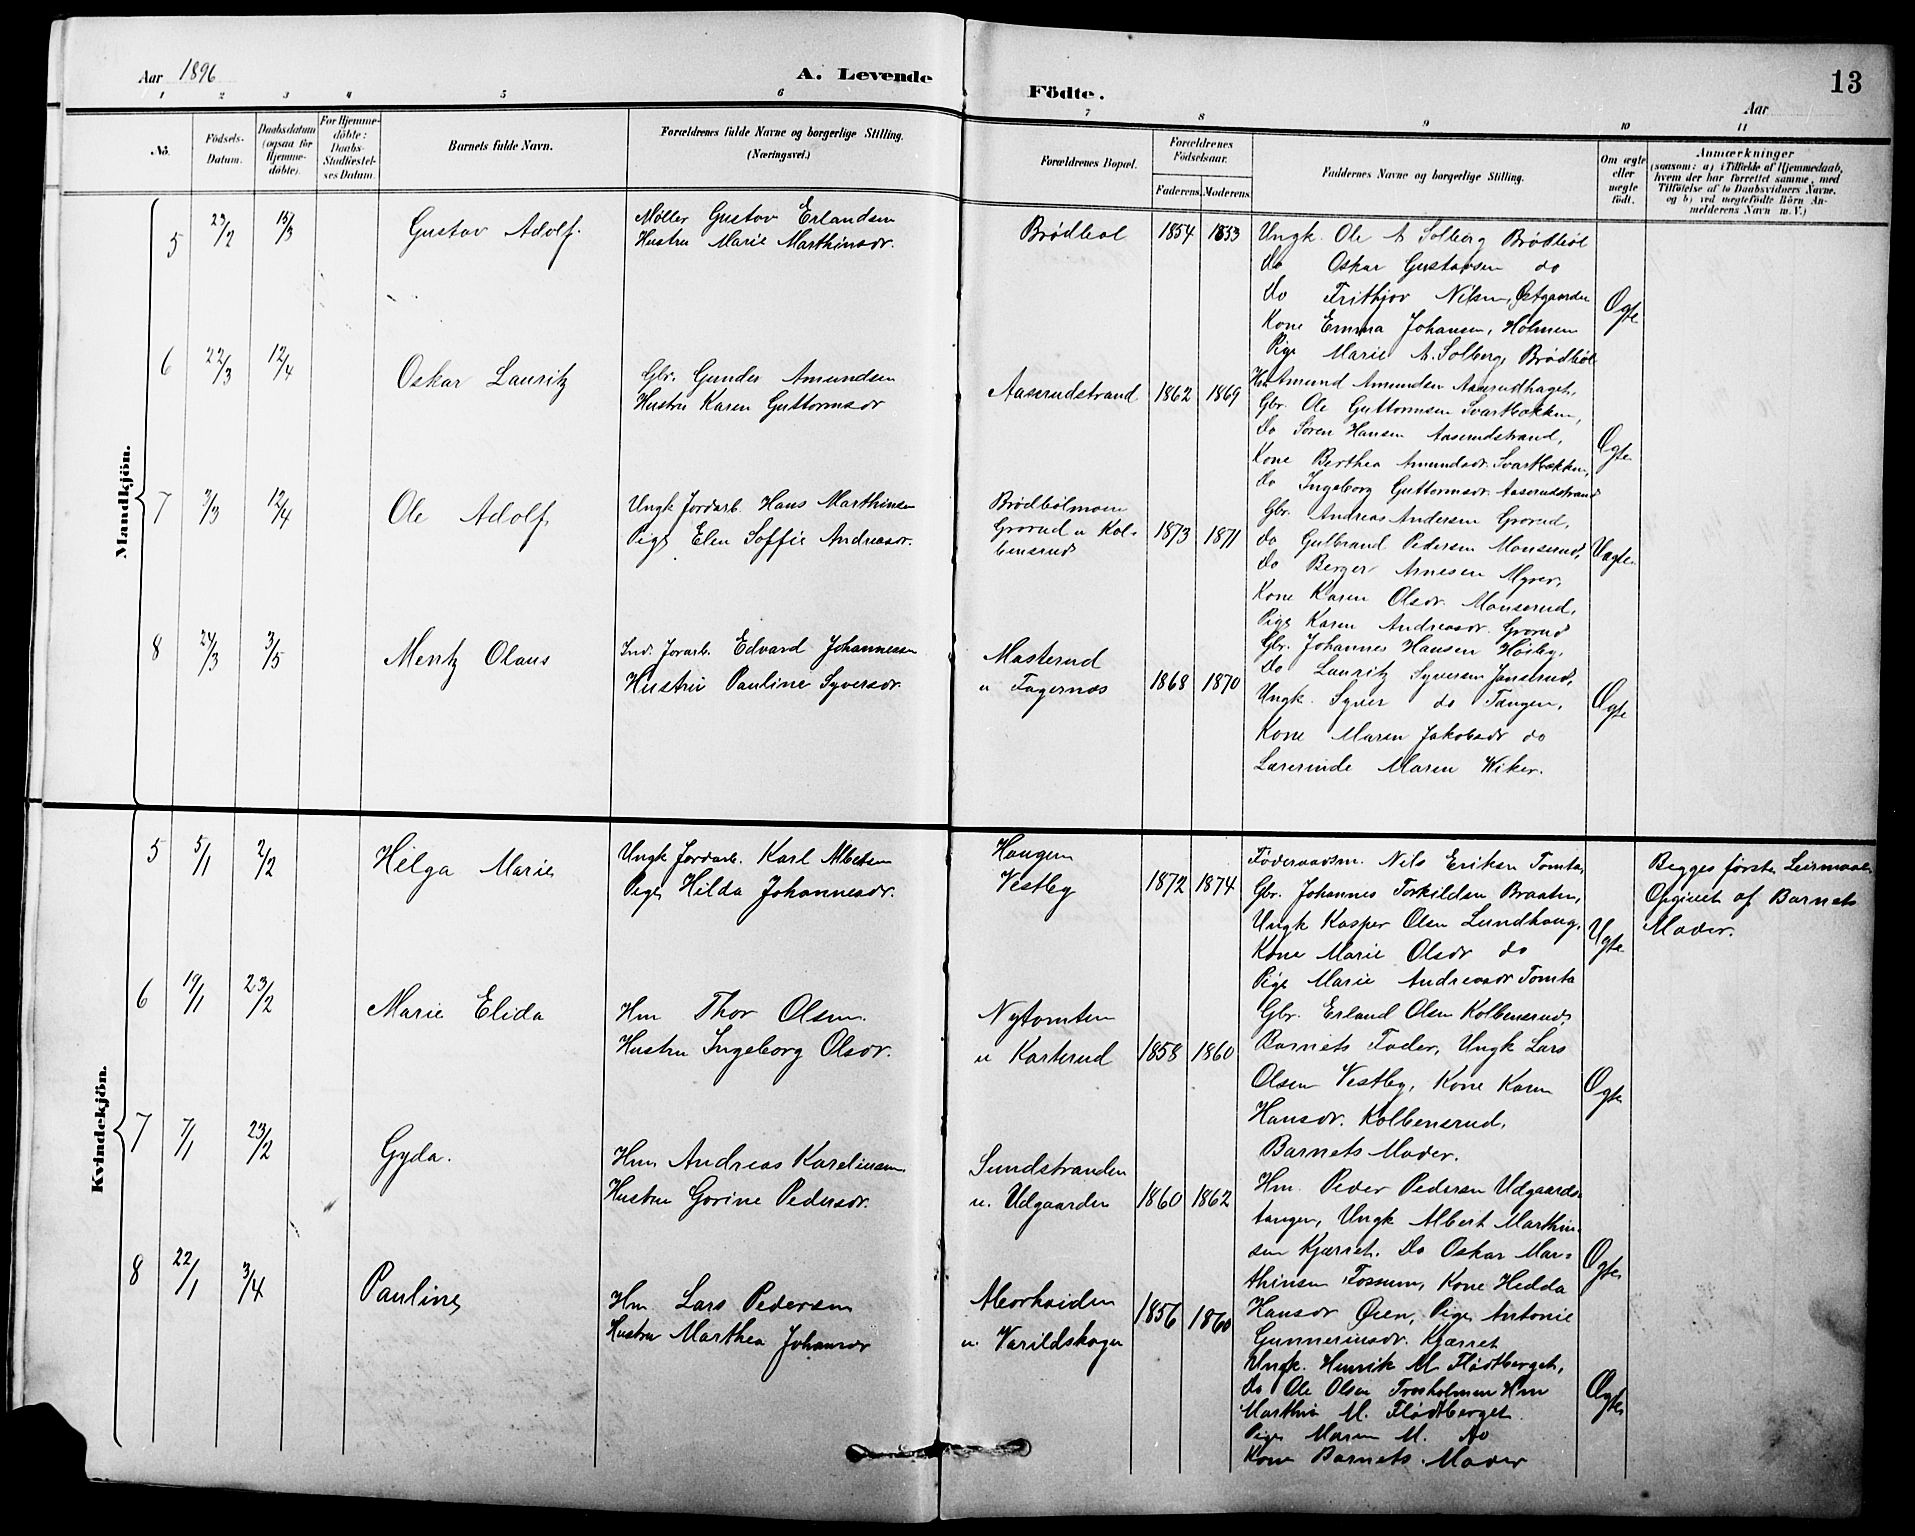 Aar 1896
A. Levende
Födte.
Aar
13
1 2 3 4 5 6 7 8 9 10 11
No.
Födsels-
Datum.
Daabsdatum
(ogsaa for
Hjemme-
døbte).
For Hjemme-
døbte:
Daabs-
Stadfæstel-
ses Datum.
Barnets fulde Navn.
Forældrenes fulde Navne og borgerlige Stilling.
(Næringsvei.)
Forældrenes Bopæl.
Forældrenes
Födselsaar.
Faderens Moderens
Faddernes Navne og borgerlige Stilling.
Om ægte
eller
uægte
født.
Anmærkninger
(saasom: a) i Tilfælde af Hjemmedaab,
hvem der har forrettet samme, med
Tilføielse af to Daabsvidners Navne,
og b) ved uægtefødte Börn An-
melderens Navn m. V.)
Mandkjön.
5 23/2 15/3 Gustav Adolf.
Møller Gustav Erlandsen
Hustru Marie Marthinsdr.
Brödböl 1854 1853
Ungk. Ole A Solberg Brödböl
Do Oskar Gustavsen do
Do Frithjov Nilsen, Østgaarden
Kone Emma Johansen, Holmen
Pige Marie A. Solberg Brödböl
Ægte
6 22/3 12/4 Oskar Lauritz
Gbr. Gunder Amundsen
Hustru Karen Guttormsdr
Aaserudstrand 1862 1869
Hm Amund Amundsen Aaserudhaget,
Gbr. Ole Guttormsen Svartbækken,
Do Søren Hansen Aaserudstrand,
Kone Berthea Amundsdr. Svartbækken,
Do Ingeborg Guttormsdr. Aaserudstrand
Ægte
7 3/3 12/4 Ole Adolf
Ungk Jordarb. Hans Marthinsen
Pige Elen Soffie Andreasdr.
Brödbölmoen
Grorud u Kol-
bensrud
1873 1871
Gbr. Andreas Andersen Grorud,
Do Gulbrand Pedersen Monserud,
Do Berger Arnesen Myrer,
Kone Karen Olsdr. Monserud,
Pige Karen Andreasdr. Grorud
Uægte
8 24/3 3/5 Mentz Olaus
Ind. Jorarb. Edvard Johannesen
Hustru Pauline Syversdr.
Masterud
u Fagernæs
1868 1870
Gbr. Johannes Hansen Høiby,
Do Lauritz Syversen Jonserud,
Ungk. Syver do Tangen,
Kone Maren Jakobsdr do
Lærerinde Maren Wiker.
Ægte
Kvindekjön.
5 5/1 2/2 Hilga Marie
Ungk Jordarb. Karl Albertsen
Pige Hilda Johannesdr.
Haugen
Vestby
1872 1874
Föderaadsm. Nils Eriksen Tomta,
Gbr. Johannes Torkildsen Braaten,
Ungk Kasper Olsen Lundhaug,
Kone Marie Olsdr do
Pige Marie Andreasdr Tomta
Uægte
Begges første Leiermaal
Opgivet af Barnets
Moder.
6 19/1 23/2 Marie Elida
Hm Thor Olsen.
Hustru Ingeborg Olsdr.
Nytomten
u Karterud
1858 1860
Gbr. Erland Olsen Kolbensrud,
Barnets Fader, Ungk Lars
Olsen Vestby, Kone Karen
Hansdr. Kolbensrud,
Barnets Moder.
Ægte
7 7/1 23/2 Gyda.
Hm. Andreas Karelinsen
Hustru Gorine Pedersdr.
Sundstranden
u. Udgaarden
1860 1862
Hm. Peder Pedersen Udgaards-
tangen, Ungk Albert Marthin-
sen Kjærret. Do Oskar Mar-
thinsen Fossum, Kone Hedda
Hansdr Øien, Pige Antonie
Gunnerinsdr. Kjærret
Ægte
8 22/1 3/4 Pauline
Hm Lars Pedersen
Hustru Marthea Johansdr
Morheiden
u. Varildskogen
1856 1860
Ungk. Henrik M. Flødtberget,
Do Ole Olsen Trosholmen Hm
Marthin M. Flødtberget.
Pige Maren M. do
Kone Barnets Moder
Ægte